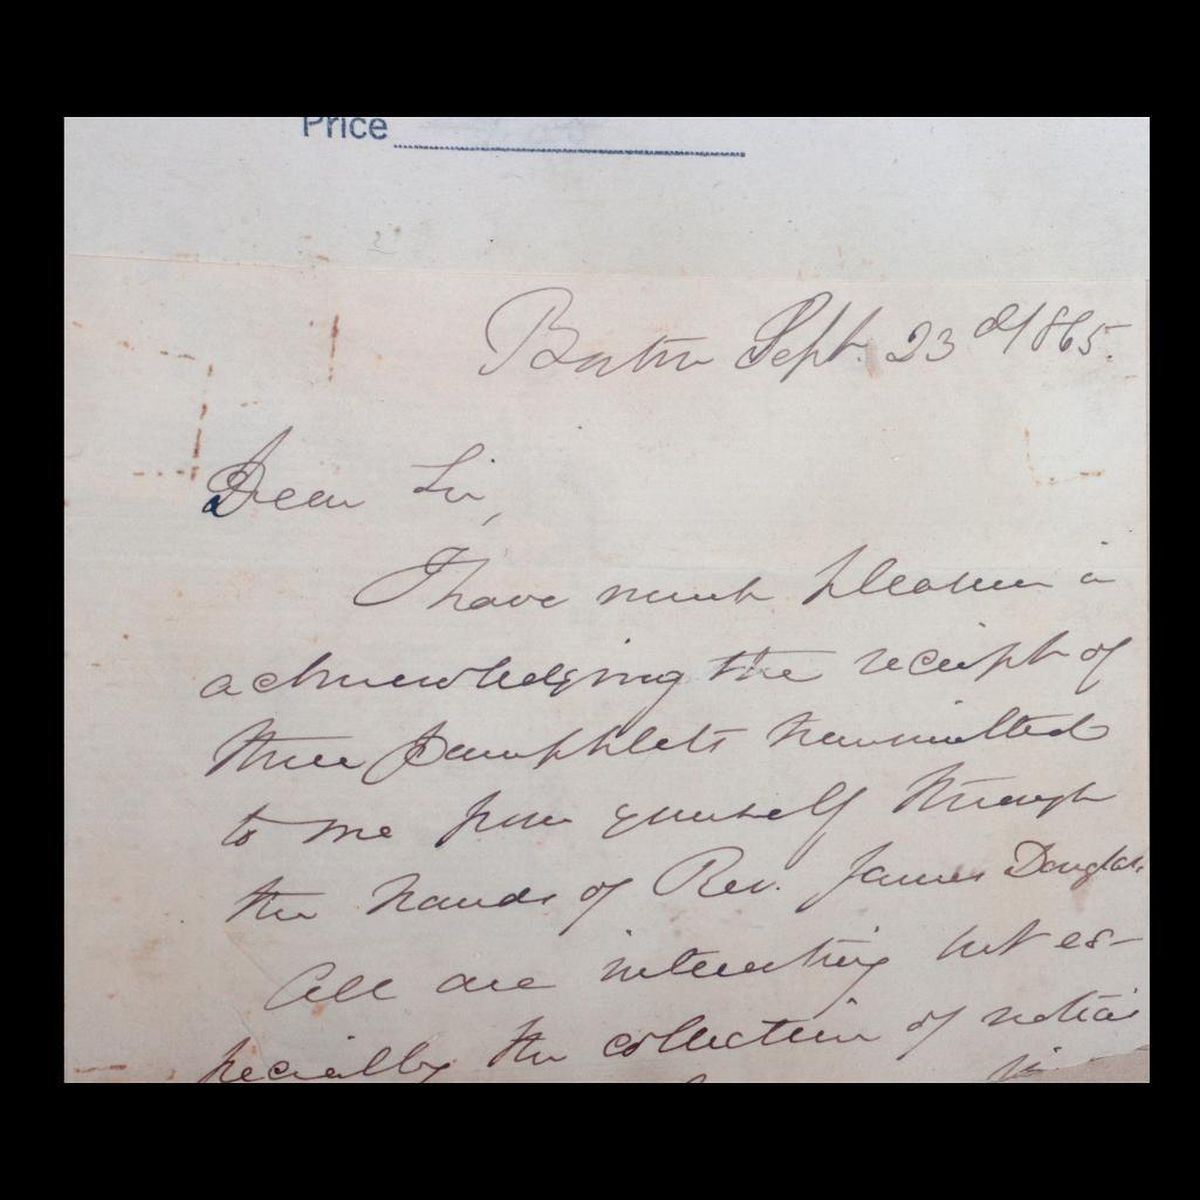 Price
Boston Sept. 23d 1865.
Dear Sir,
I have much pleasure in
acknowledging the receipt of
three pamphlets transmitted
to me from yourself through
the hands of Rev. James Douglas.
All are interesting but es-
pecially the collection of notices